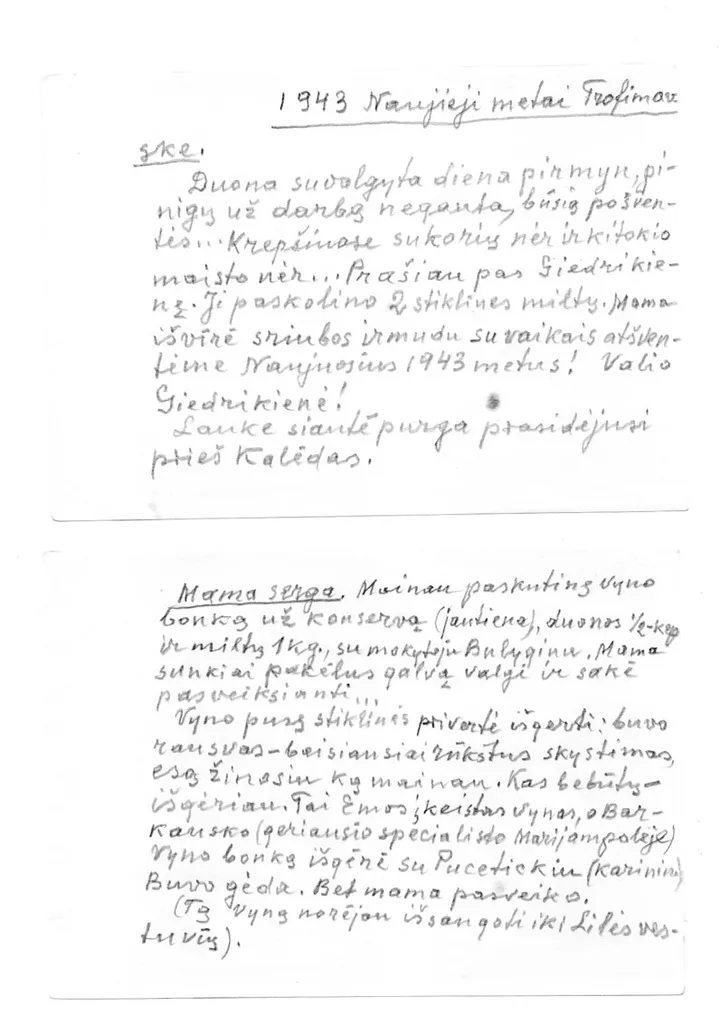 1943 Naujieji metai Trofimav
ske.
Duona suvalgyta diena pirmyn, pi-
nigų už darbą negauta, būsią pošven-
tės... Krepšiuose sukorių nėr ir kitokio
maisto nėr... Prašiau pas Giedrikie-
nę. Ji paskolino 2 stiklines miltų. Mama
išvirė sriubos ir mudu su vaikais atšven-
tėme Naujuosius 1943 metus! Valio
Giedrikienė!
Lauke siautė purga prasidėjusi
prieš Kalėdas.
Mama serga. Mainau paskutinę vyno
bonką už konservą (jautiena), duonos 1/2-kep
ir miltų 1kg., su mokytoju Bulyginu. Mama
sunkiai pakėlus galvą valgė ir sakė
pasveiksianti...
Vyno pusę stiklinės privertė išgerti: buvo
rausvas-baisiausiai rūkštus skystimas,
esą žinosiu ką mainau. Kas bebūtų-
išgėriau. Tai Emos įkeistas vynas, o Bar-
kausko (geriausio specialisto Marijampolėje)
Vyno bonką išgėrė su Pucetickiu (karininku)
Buvo gėda. Bet mama pasveiko.
(Tą vyną norėjau išsaugoti iki Lilės ves-
tuvių).